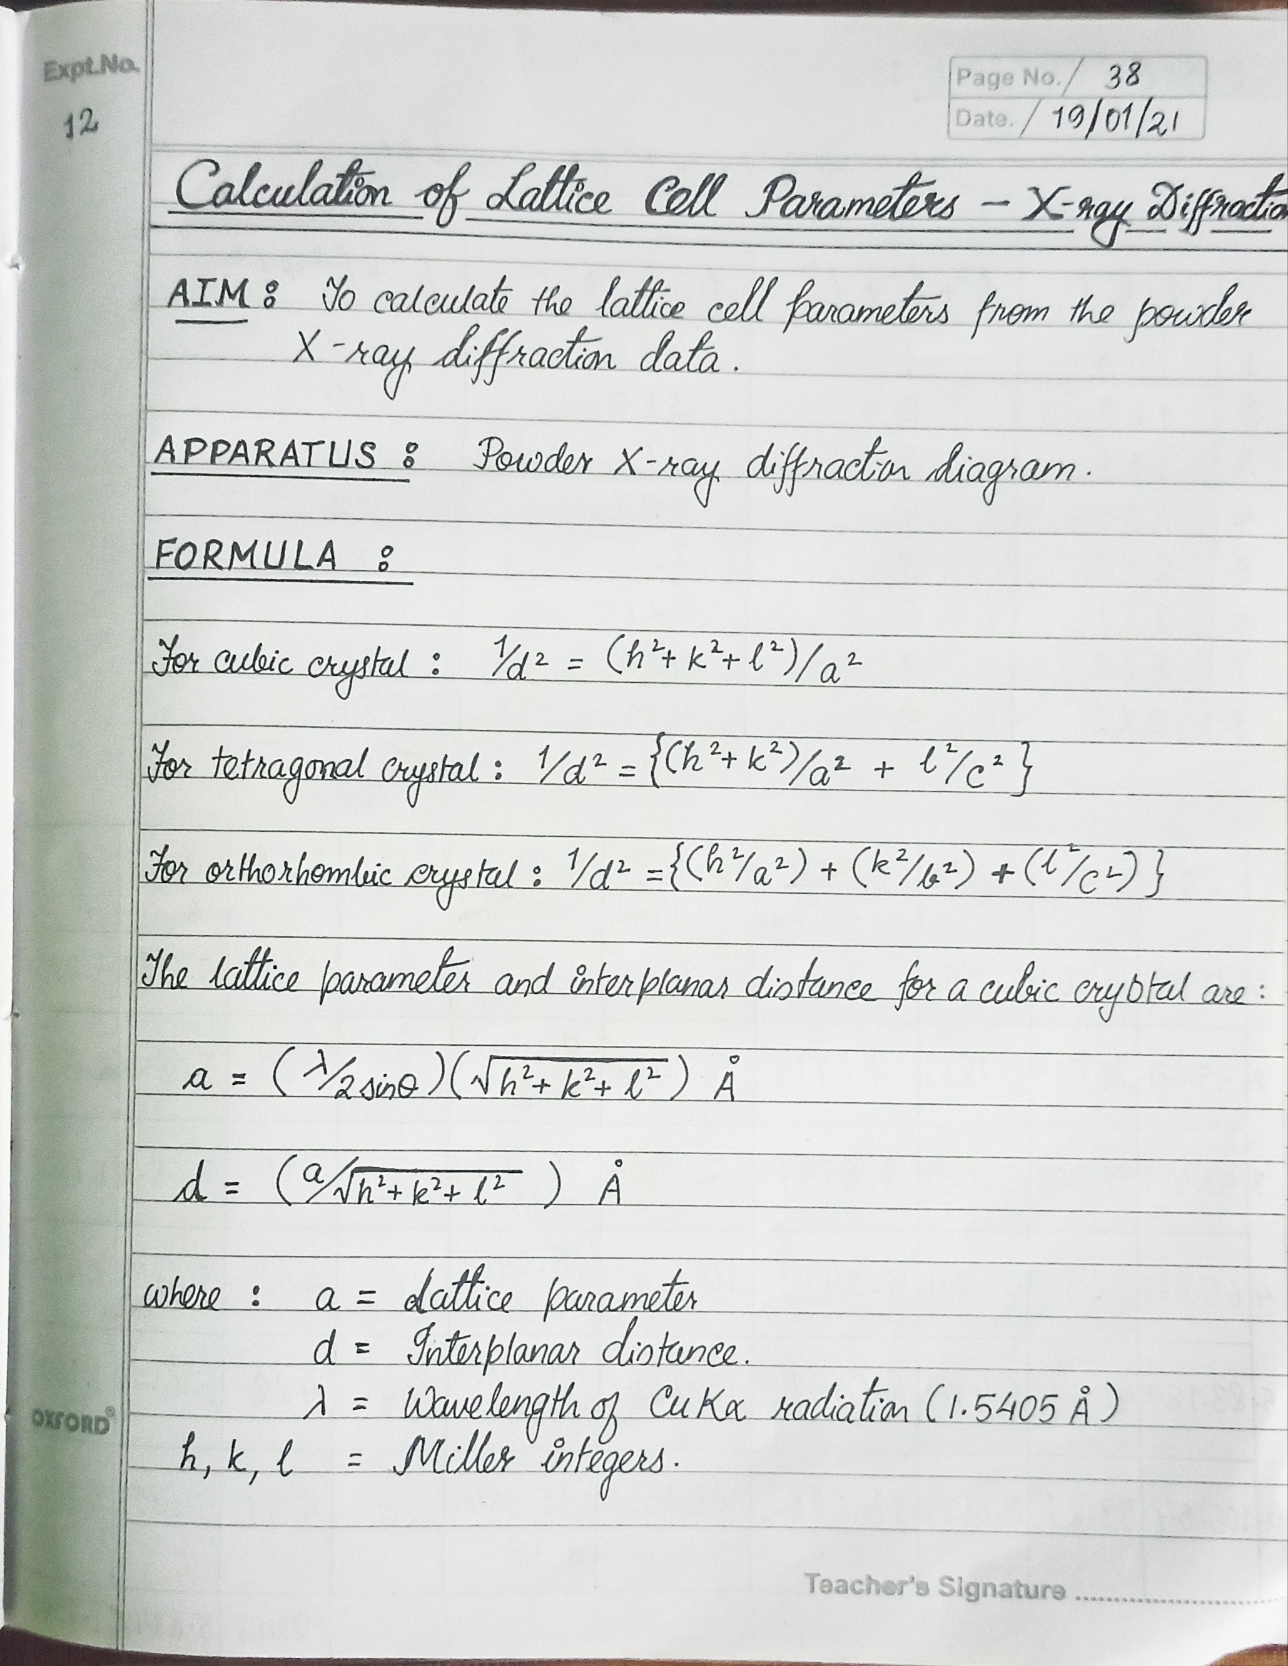 Expt.No.
12
Page No. / 38
Date. / 19/01/21
Calculation of Lattice Cell Parameters – X-ray Diffractio
AIM : To calculate the lattice cell parameters from the powder
X-ray diffraction data.
APPARATUS : Powder X-ray diffraction diagram.
FORMULA :
For cubic crystal : 1/d² = (h²+ k²+ l²)/a²
For tetragonal crystal : 1/d² = {(h²+ k²)/a² + l²/c²}
For orthorhombic crystal : 1/d² = {(h²/a²) + (k²/b²) + (l²/c²)}
The lattice parameter and interplanar distance for a cubic crystal are :
a = (λ/2sinθ)(√h²+ k²+ l²) Å
d = (a/√h²+ k²+ l²) Å
where : a = Lattice parameter
d = Interplanar distance.
λ = Wavelength of CuKα radiation (1.5405 Å)
OXFORD®
h, k, l = Miller integers.
Teacher's Signature ....................